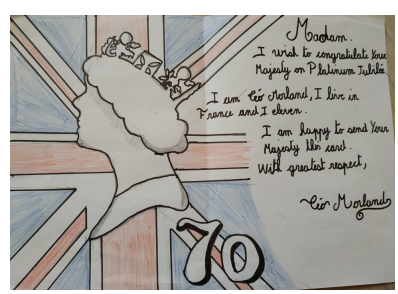 Madam.
I wish to congratulate Your
Majesty on Platinum Jubilee
I am Céo Morland, I live in
France and I eleven.
I am happy to send Your
Majesty this card.
With greatest respect,
Céo Morland
70